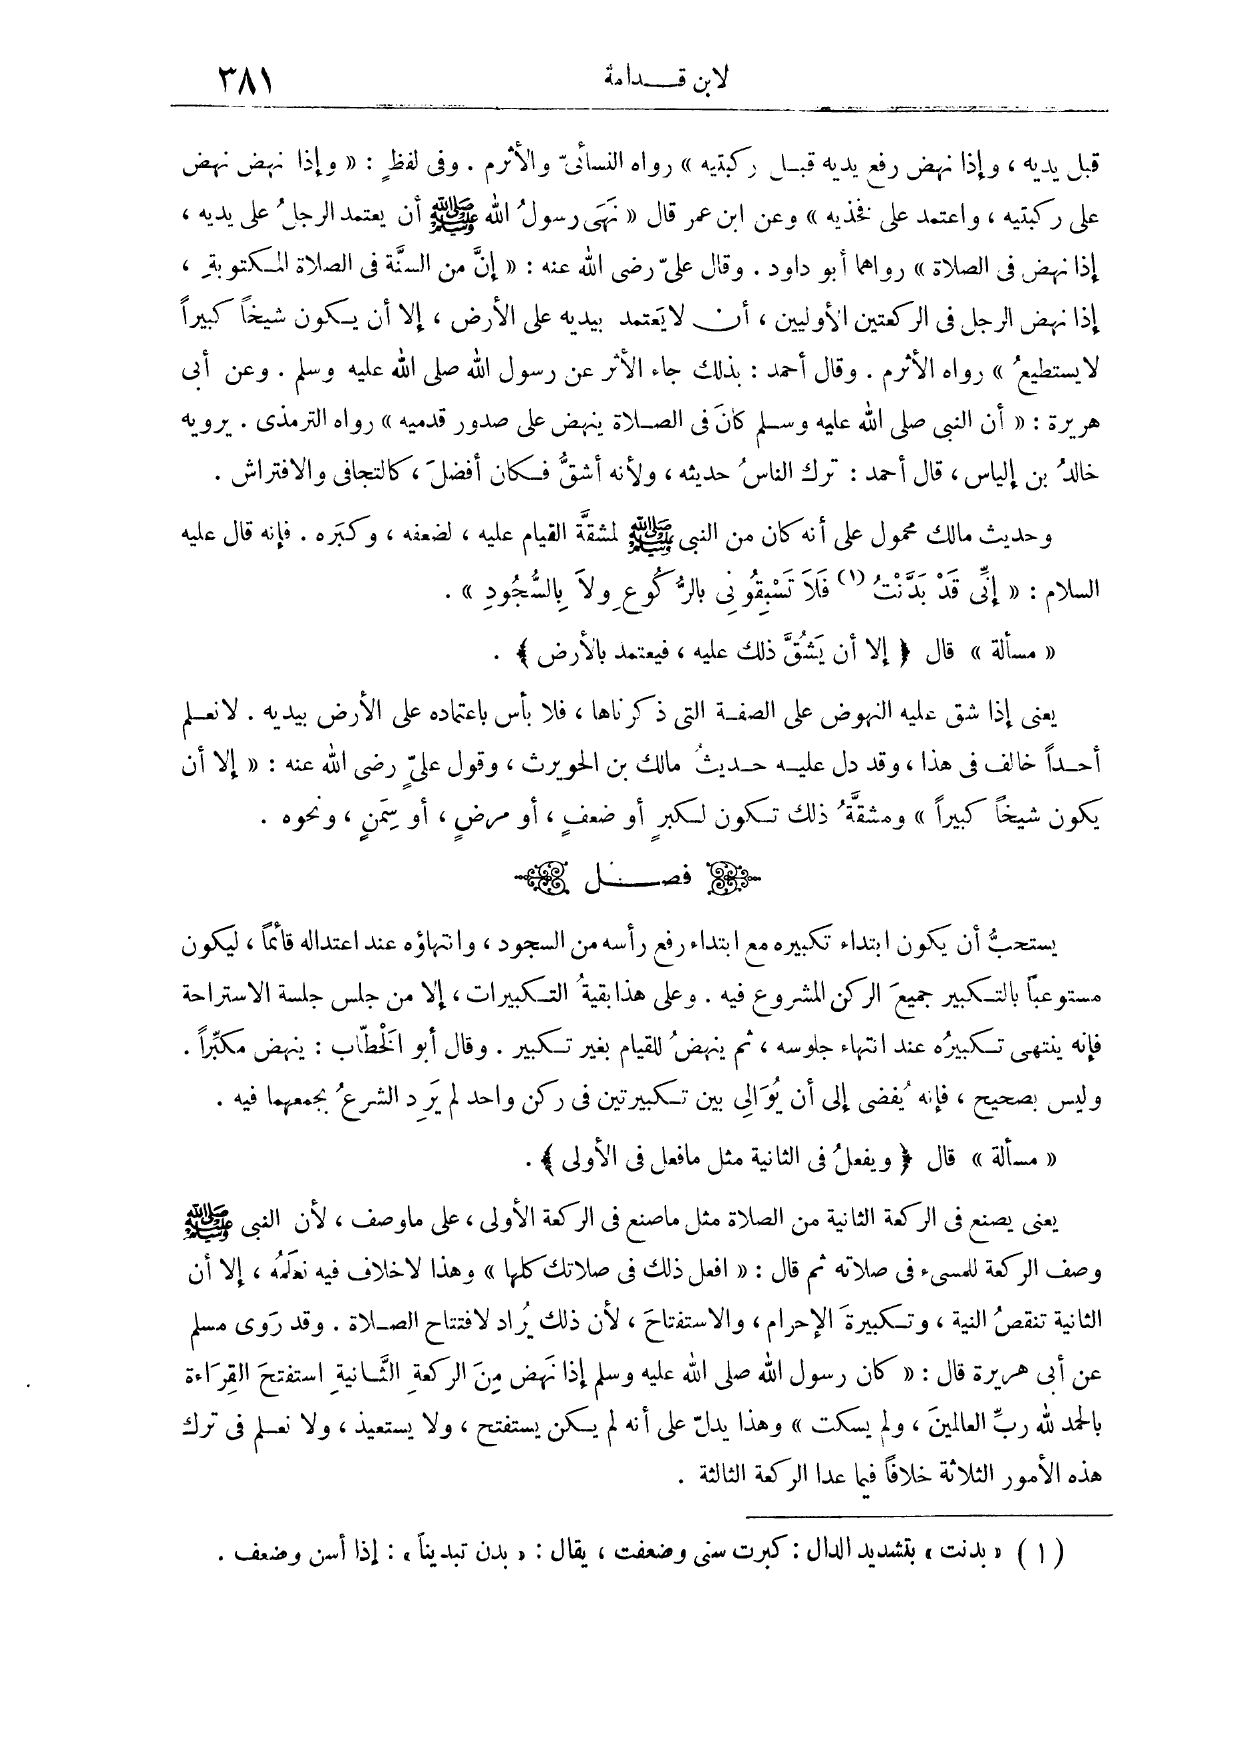 لابن قـــدامة ٣٨١
قبل يديه ، وإذا نهض رفع يديه قبــل ركبتيه » رواه النسائىّ والأثرم . وفى لفظٍ : « وإذا نهض نهض
على ركبتيه ، واعتمد على نخذيه » وعن ابن عمر قال « نَهَى رسولُ الله ﷺ أن يعتمد الرجلُ على يديه ،
إذا نهض فى الصلاة » رواهما أبو داود . وقال علىّ رضى الله عنه : « إنَّ من السنَّة فى الصلاة المـكتوبةِ ،
إذا نهض الرجل فى الركعتين الأوليين ، أن لا يَعتمد بيديه على الأرض ، إلا أن يـكون شيخاً كبيراً
لا يستطيعُ » رواه الأثرم . وقال أحمد : بذلك جاء الأثر عن رسول الله صلى الله عليه وسلم . وعن أبى
هريرة : « أن النبى صلى الله عليه وســلم كانَ فى الصــلاة ينهض على صدور قدميه » رواه الترمذى . يرويه
خالدُ بن إلياس ، قال أحمد : ترك الناسُ حديثه ، ولأنه أشقُّ فـكان أفضلَ ، كالتجافى والافتراش .
وحديث مالك محمول على أنه كان من النبى ﷺ لمشقَّة القيام عليه ، لضعفه ، وكبَره . فإنه قال عليه
السلام : « إنِّى قَدْ بَدَّنْتُ (١) فَلَا تَسْبِقُونِى بالرُّكُوعِ ولاَ بِالسُّجُودِ » .
« مسألة » قال ﴿ إلا أن يَشُقَّ ذلك عليه ، فيعتمد بالأرض ﴾ .
يعنى إذا شق عليه النهوض على الصفــة التى ذكرناها ، فلا بأس باعتماده على الأرض بيديه . لا نعــلم
أحــداً خالف فى هذا ، وقد دل عليــه حــديثُ مالك بن الحويرث ، وقول علىٍّ رضى الله عنه : « إلا أن
يكون شيخاً كبيراً » ومشقَّةُ ذلك تـكون لـكبرٍ أو ضعفٍ ، أو مرضٍ ، أو سِمَنٍ ، ونحوه .
فصــــل
يستحبُّ أن يكون ابتداء تكبيره مع ابتداء رفع رأسه من السجود ، وانتهاؤه عند اعتداله قائماً ، ليكون
مستوعباً بالتـكبير جميعَ الركن المشروع فيه . وعلى هذا بقيةُ التـكبيرات ، إلا من جلس جلسة الاستراحة
فإنه ينتهى تـكبيرُه عند انتهاء جلوسه ، ثم ينهضُ للقيام بغير تـكبير . وقال أبو الخْطّاب : ينهض مكبِّراً .
وليس بصحيح ، فإنه يُفضى إلى أن يُوَالِى بين تـكبيرتين فى ركن واحد لم يَرِد الشرعُ بجمعهما فيه .
« مسألة » قال ﴿ ويفعلُ فى الثانية مثل مافعل فى الأولى ﴾ .
يعنى يصنع فى الركعة الثانية من الصلاة مثل ماصنع فى الركعة الأولى ، على ماوصف ، لأن النبى ﷺ
وصف الركعة للمسىء فى صلاته ثم قال : « افعل ذلك فى صلاتك كلها » وهذا لاخلاف فيه نعلَمُه ، إلا أن
الثانية تنقصُ النية ، وتـكبيرةَ الإحرام ، والاستفتاحَ ، لأن ذلك يُراد لافتتاح الصــلاة . وقد رَوى مسلم
عن أبى هريرة قال : « كان رسول الله صلى الله عليه وسلم إذا نَهض مِنَ الركعةِ الثَّــانيةِ استفتحَ القِرَاءة
بالحمد لله ربِّ العالمينَ ، ولم يسكت » وهذا يدلّ على أنه لم يـكن يستفتح ، ولا يستعيذ ، ولا نعــلم فى ترك
هذه الأمور الثلاثة خلافاً فيما عدا الركعة الثالثة .
(١) « بدنت » بتشديد الدال : كبرت سنى وضعفت ، يقال : « بدن تبديناً » : إذا أسن وضعف .